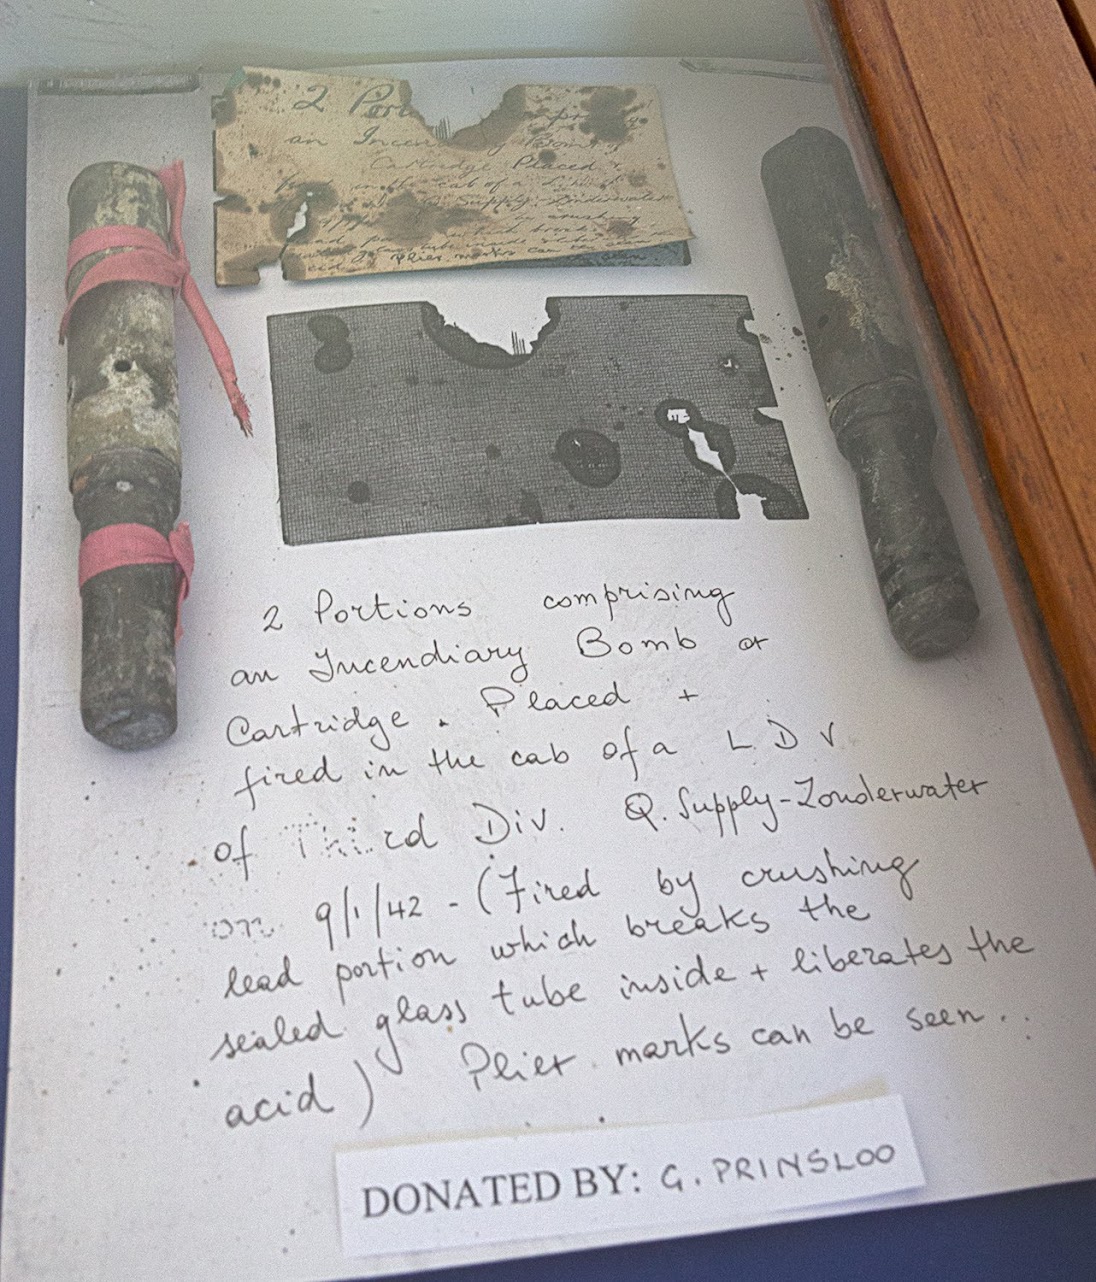 2 Por
an Incen Bomb
Cartridge Placed +
in the cab of a L
Supply-Zonderwater
by crushing
which breaks
glass tube inside
acid Plier marks can be seen.
2 Portions comprising
an Incendiary Bomb or
Cartridge. Placed +
fired in the cab of a L.D.V.
of Third Div. Q. Supply-Zonderwater
on 9/1/42 - (Fired by crushing
lead portion which breaks the
sealed glass tube inside + liberates the
acid) Plier marks can be seen..
DONATED BY: G. PRINSLOO